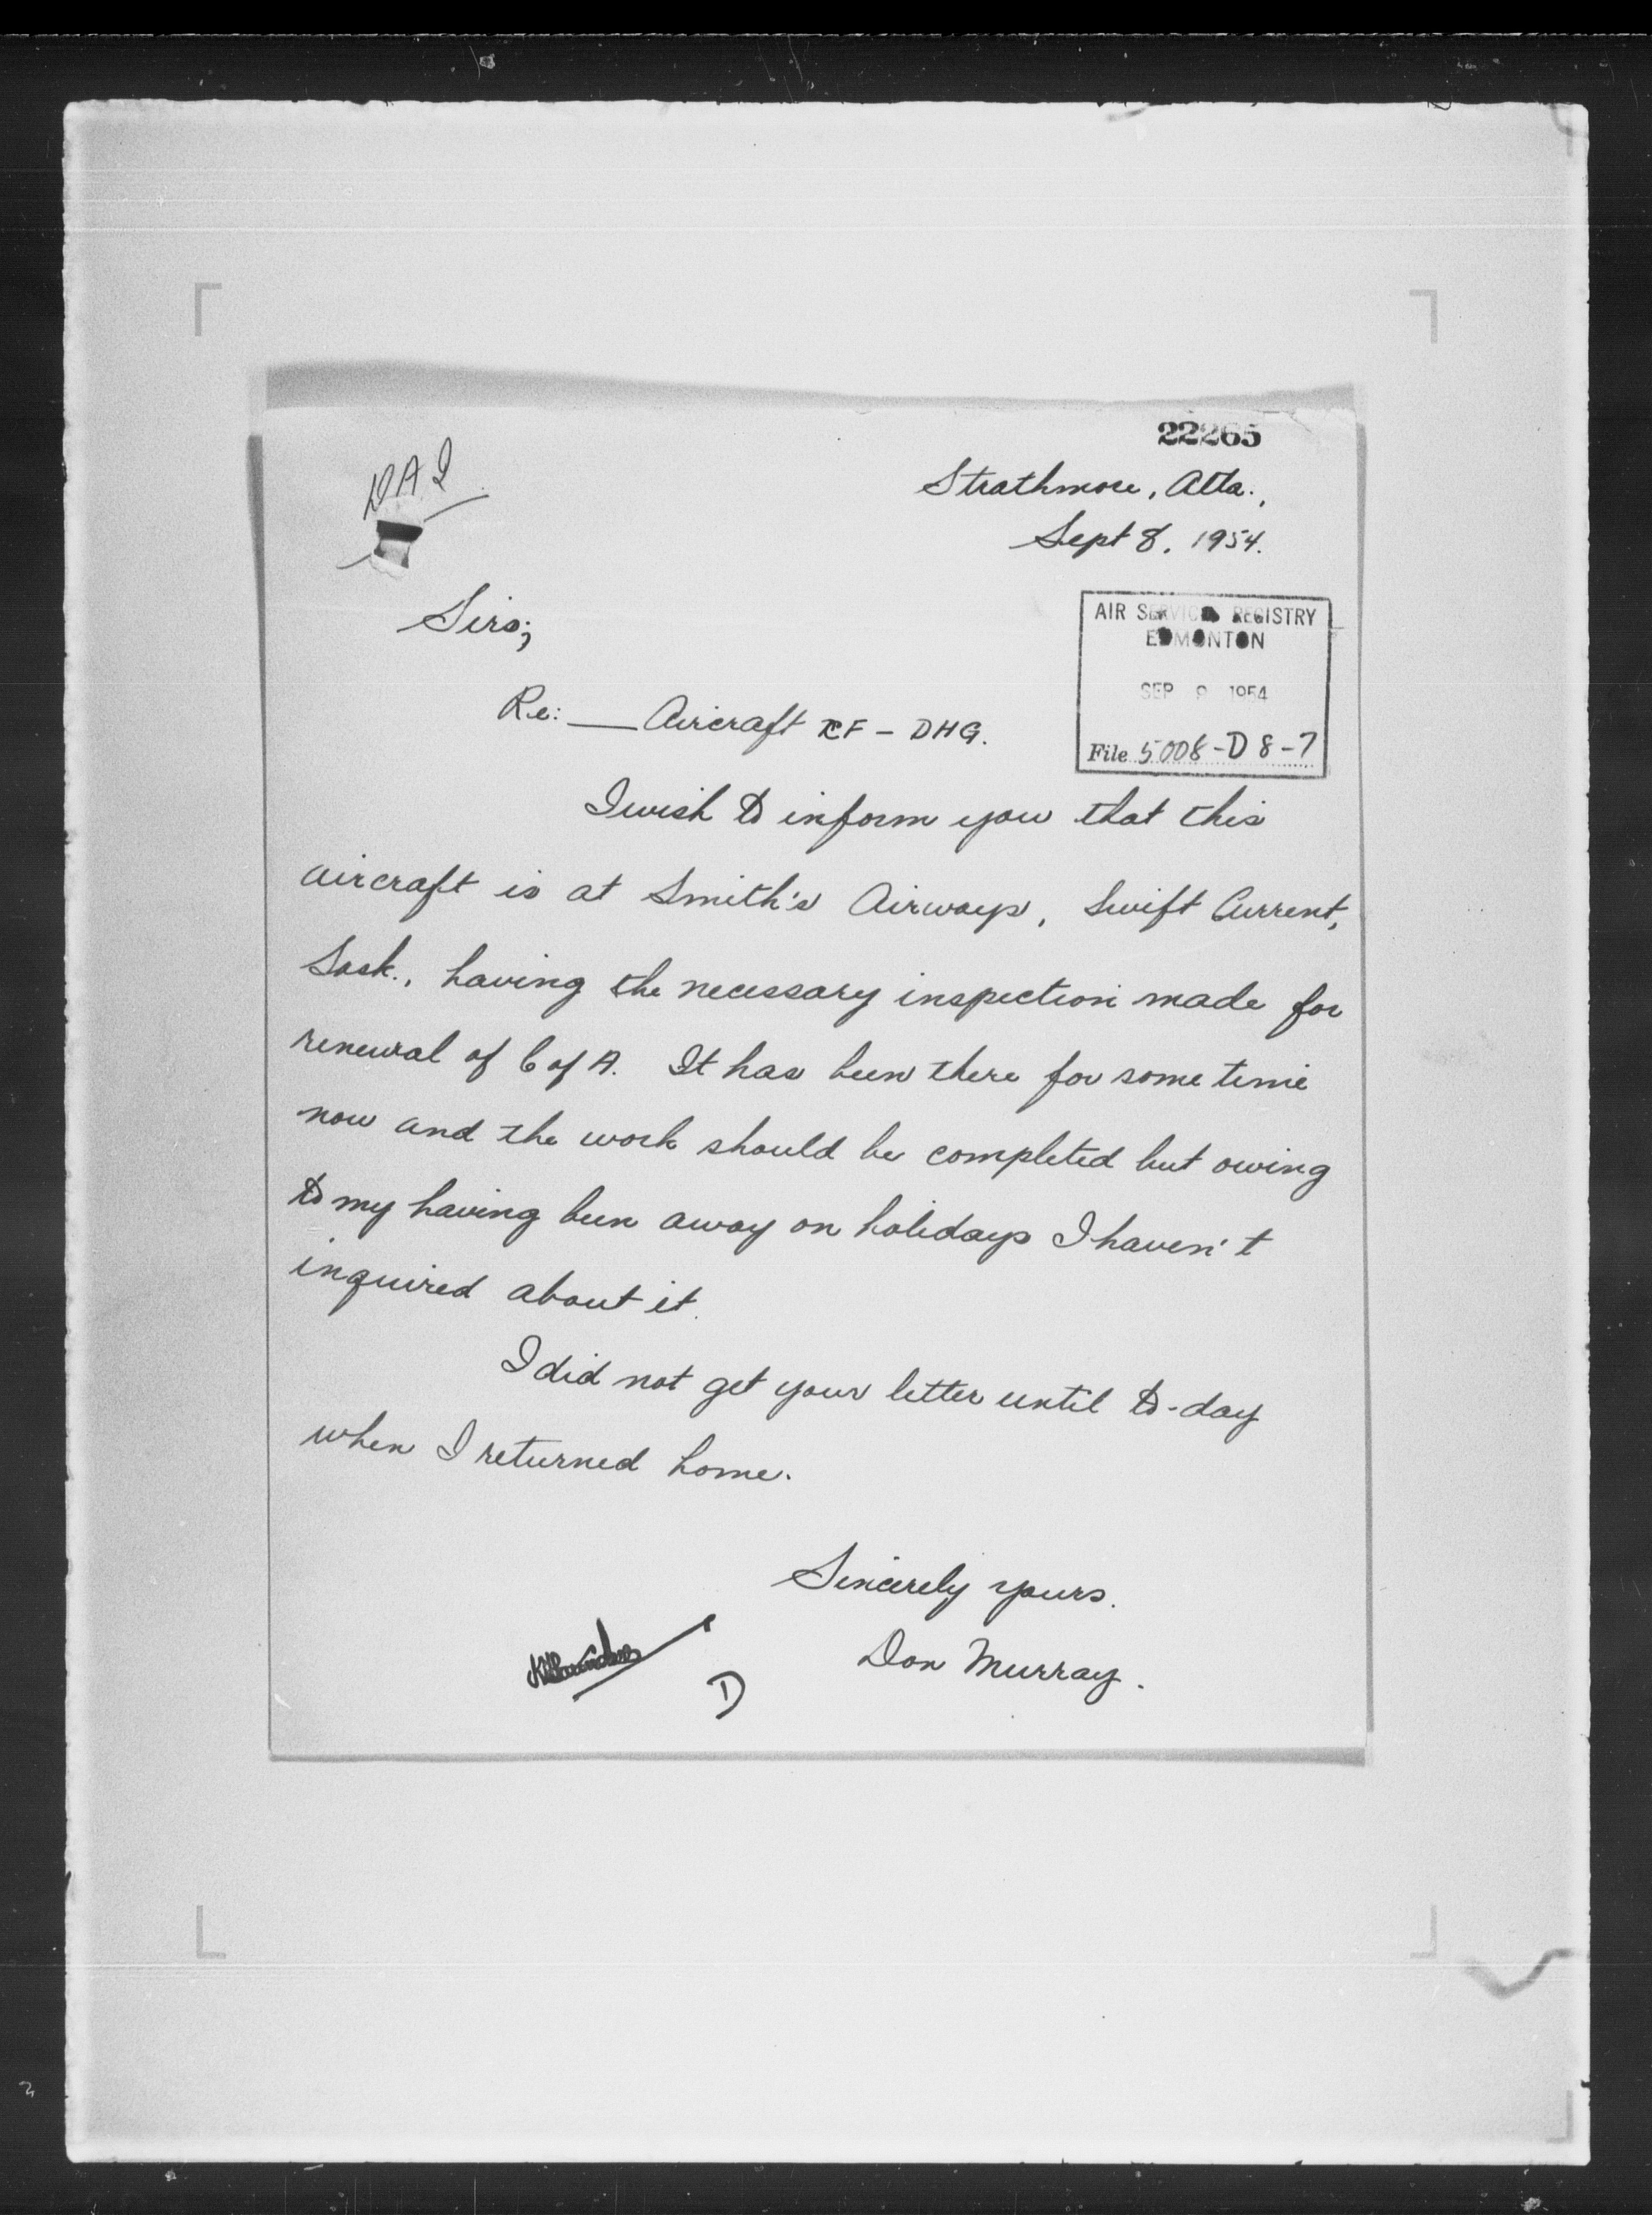 22265
DAI
Strathmore, Alta.,
Sept 8, 1954.
AIR SERVICES REGISTRY
EDMONTON
SEP 9 1954
File 5008-D8-7
Sirs;
Re: — Aircraft CF - DHG.
I wish to inform you that this
aircraft is at Smith's Airways, Swift Current,
Sask., having the necessary inspection made for
renewal of C of A. It has been there for some time
now and the work should be completed but owing
to my having been away on holidays I haven't
inquired about it.
I did not get your letter until to-day
when I returned home.
Sincerely yours.
Don Murray.
D